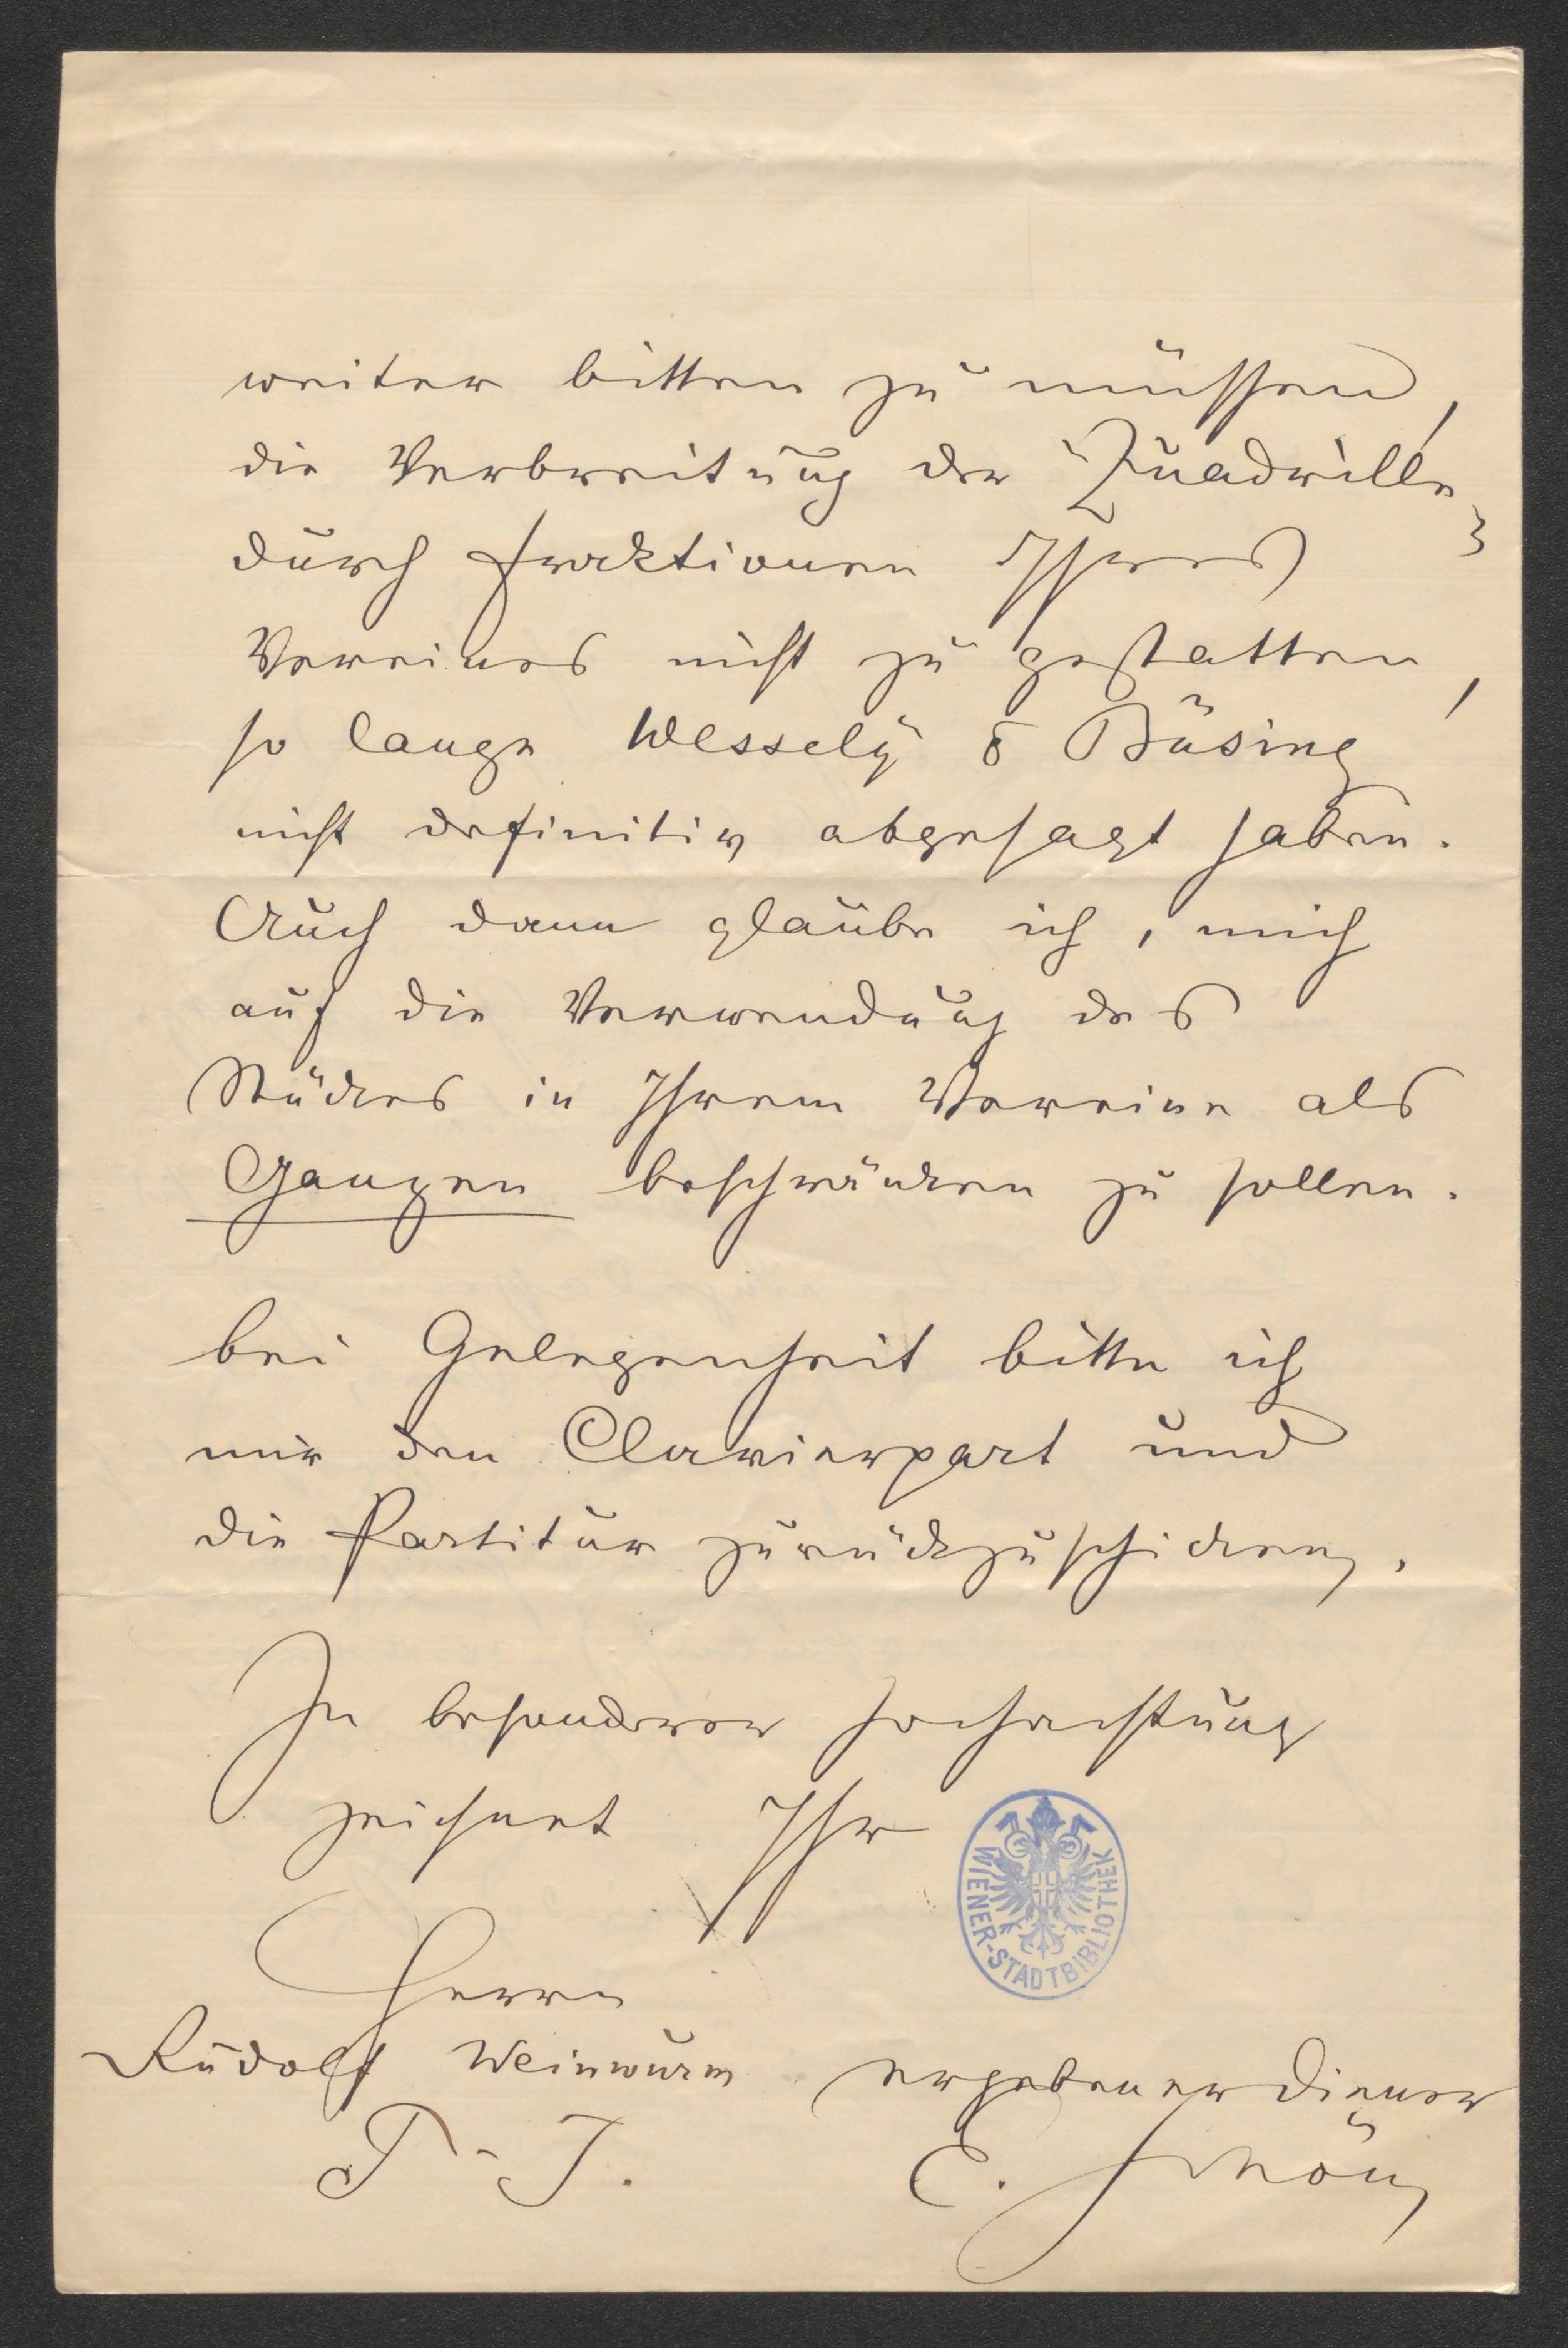 weiter bitten zu müssen,
die Verbreitung der Quadrille
durch Fraktionen Ihres
Vereines nicht zu gestatten,
so lange Wessely & Büsing
nicht definitiv abgesagt haben.
Auch dann glaube ich, mich
auf die Verwendung des
Stückes in Ihrem Vereine als
Ganzen beschränken zu sollen.
bei Gelegenheit bitte ich
mir den Clavierpart und
die Partitur zurückzuschicken.
In besonderer Hochachtung
zeichnet Ihr
WIENER-STADTBIBLIOTHEK
Herrn
Rudolf Weinwurm
ergebener Diener
T.
E. Schön